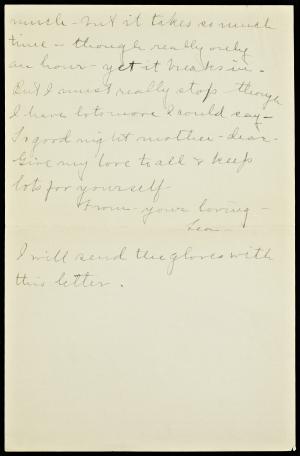 much - but it takes so much
time - though really only
an hour - yet it breaks in -
But I must really stop - though
I have lots more I could say -
So good night mother - dear -
Give my love to all & keep
lots for yourself
From - your loving -
Leon -
I will send the gloves with
this letter.